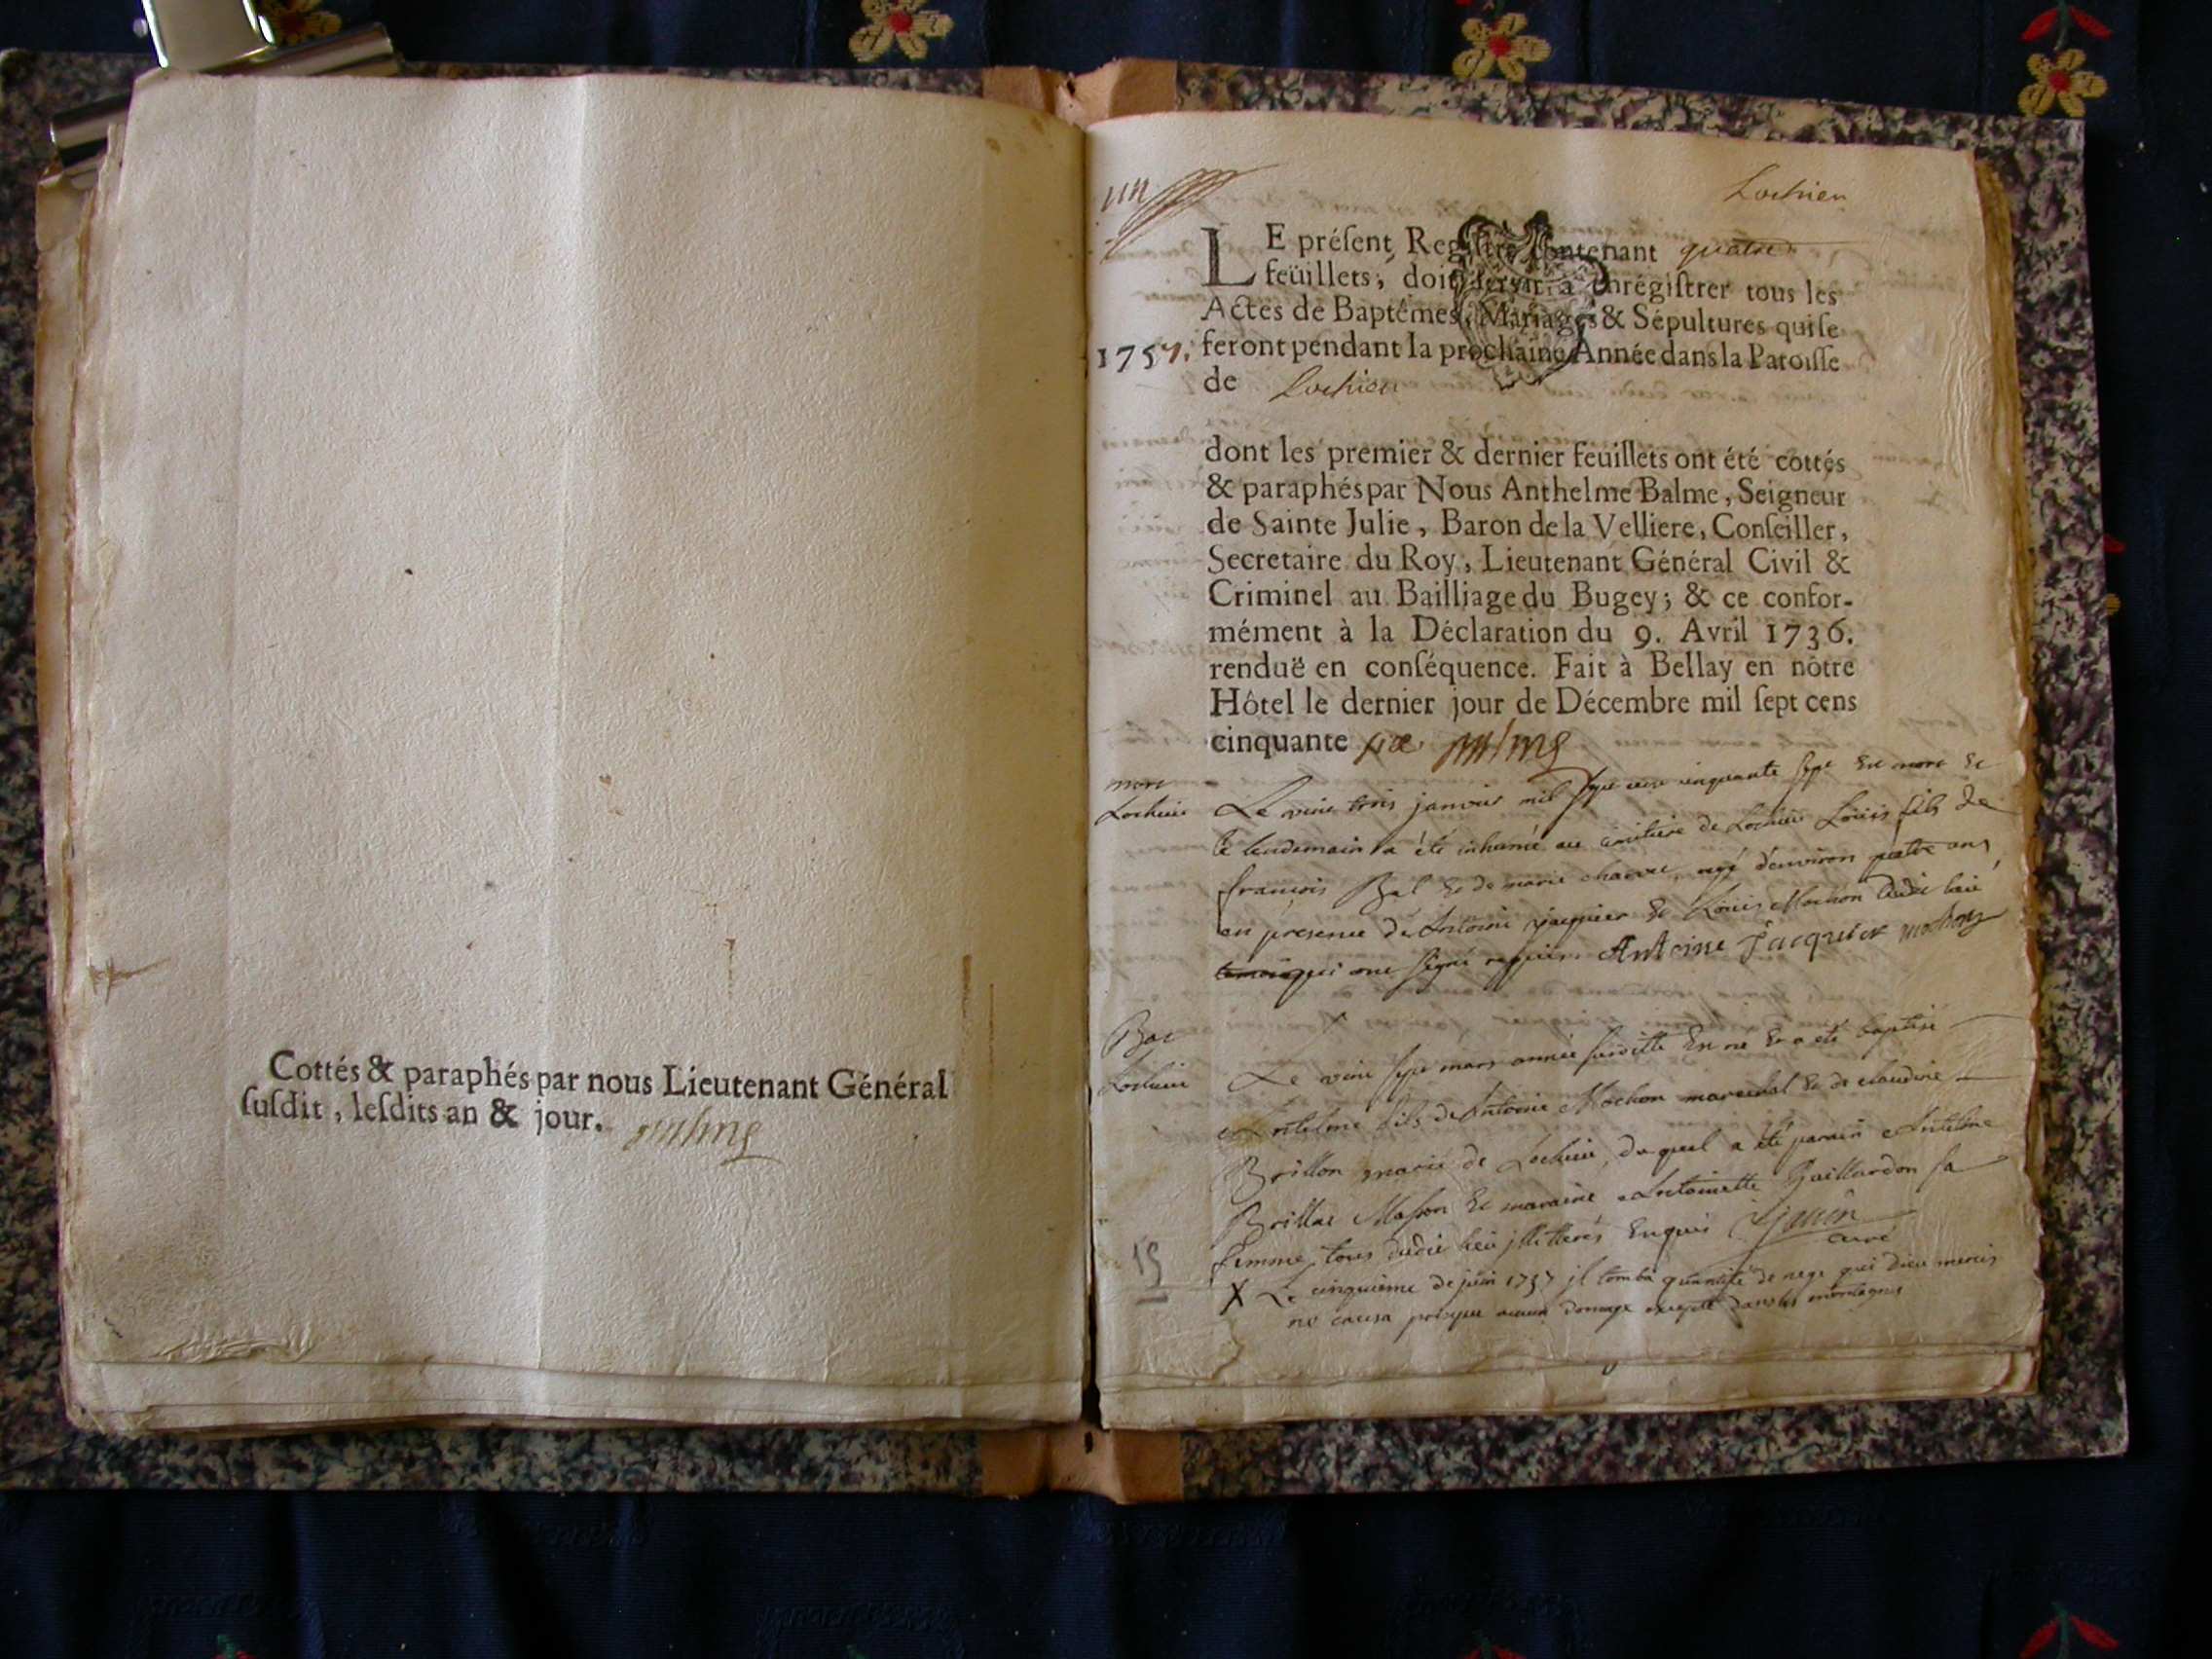 Cottés & paraphés par nous Lieutenant Général
ſuſdit, leſdits an & jour.
un
Lochieu
LE préſent Regiſtre contenant quatre
feüillets, doit ſervir à enrégiſtrer tous les
Actes de Baptêmes, Mariages & Sépultures qui ſe
1757. feront pendant la prochaine Année dans la Paroiſſe
de Lochieu
dont les premier & dernier feuillets ont été cottés
& paraphés par Nous Anthelme Balme, Seigneur
de Sainte Julie, Baron de la Velliere, Conſeiller,
Secretaire du Roy, Lieutenant Général Civil &
Criminel au Bailliage du Bugey; & ce confor-
mément à la Déclaration du 9. Avril 1736.
renduë en conſéquence. Fait à Bellay en nôtre
Hôtel le dernier jour de Décembre mil ſept cens
cinquante six
mort
Lochieu
Le vint trois janvier mil sept cens cinquante sept est mort et
le lendemain a été inhumé au cimitiere de Lochieu Loüis fils de
françois Bal et de marie charvet, agé d'environ quatre ans,
en presence d'Antoine jacquier et Loüis Mochon dudit lieu
qui ont signé requis. Antoine Jacquier mochon
Bat
Lochieu
Le vint sept mars année susditte est né et a été baptisé
Antelme fils d'Antoine Mochon marechal et de claudine
Brillon marié de Lochieu, duquel a été parain Antelme
Brillat Masson et maraine Antoinette Gaillardon sa
femme, tous dudit lieu jllitterés enquis
curé
19
X Le cinquième de juin 1757 jl tomba quantité de nege qui Dieu mercis
ne causa presque aucun domage excepté dans les montagnes